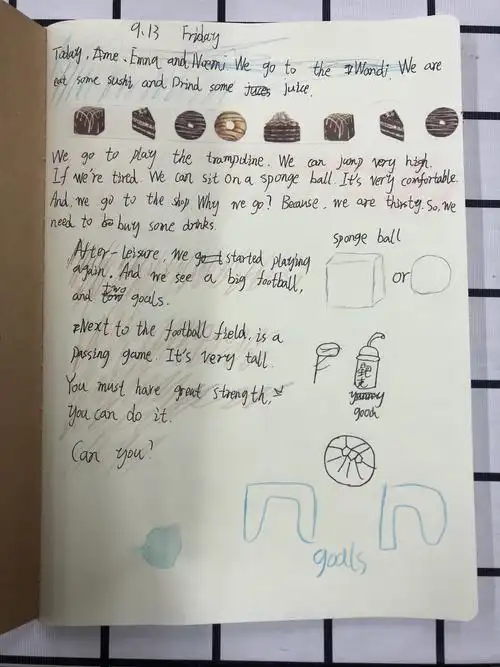 9.13 Friday
Today, Ame, Emna and Naemi We go to the Wandi We are
eat some sushi and Drind some juice.
We go to play the trampoline. We can jump very high.
If we're tired. We can sit on a sponge ball. It's very comfortable.
And, we go to the shop Why we go? Because, we are thirsty. So, we
need to buy some drinks.
After-leisure, we started playing
again, And we see a big football,
and two goals.
Next to the football field, is a
passing game. It's very tall.
You must have great strength,
you can do it.
Can you?
sponge ball
or
gooh
goalls